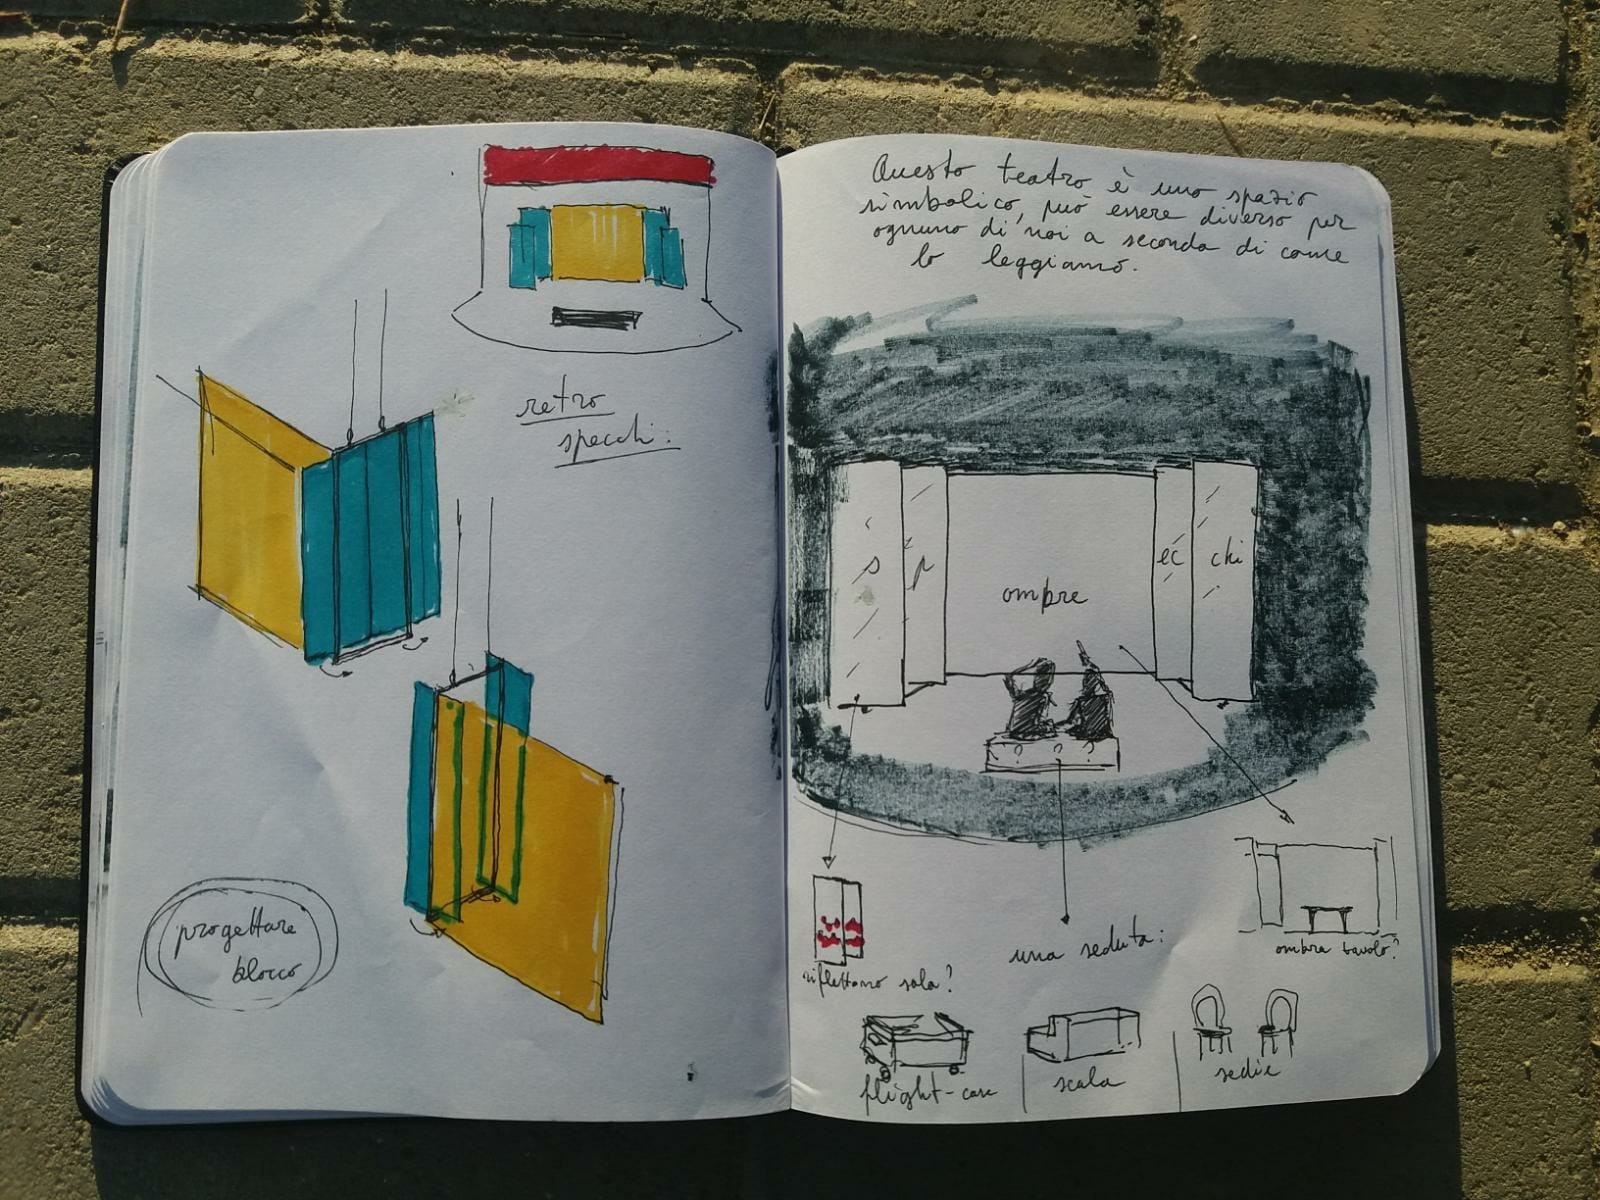 retro
specchi:
progettare
blocco
Questo teatro è uno spazio
simbolico, può essere diverso per
ognuno di noi a seconda di come
lo leggiamo.
s p ec chi
ombre
riflettono sala?
una seduta:
ombra tavolo?
flight-case
scala
sedie